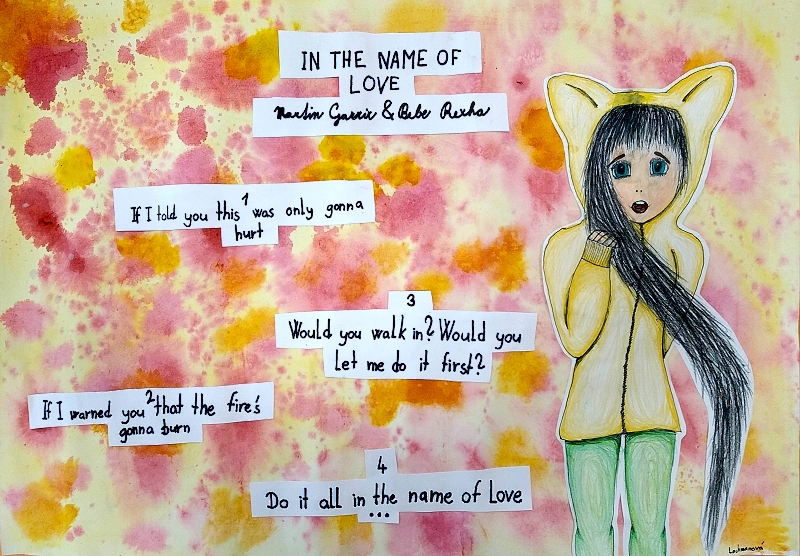 IN THE NAME OF
LOVE
Martin Garrix & Bebe Rexha
1
If I told you this was only gonna
hurt
3
Would you walk in? Would you
let me do it first?
2
If I warned you that the fire's
gonna burn
4
Do it all in the name of Love
...